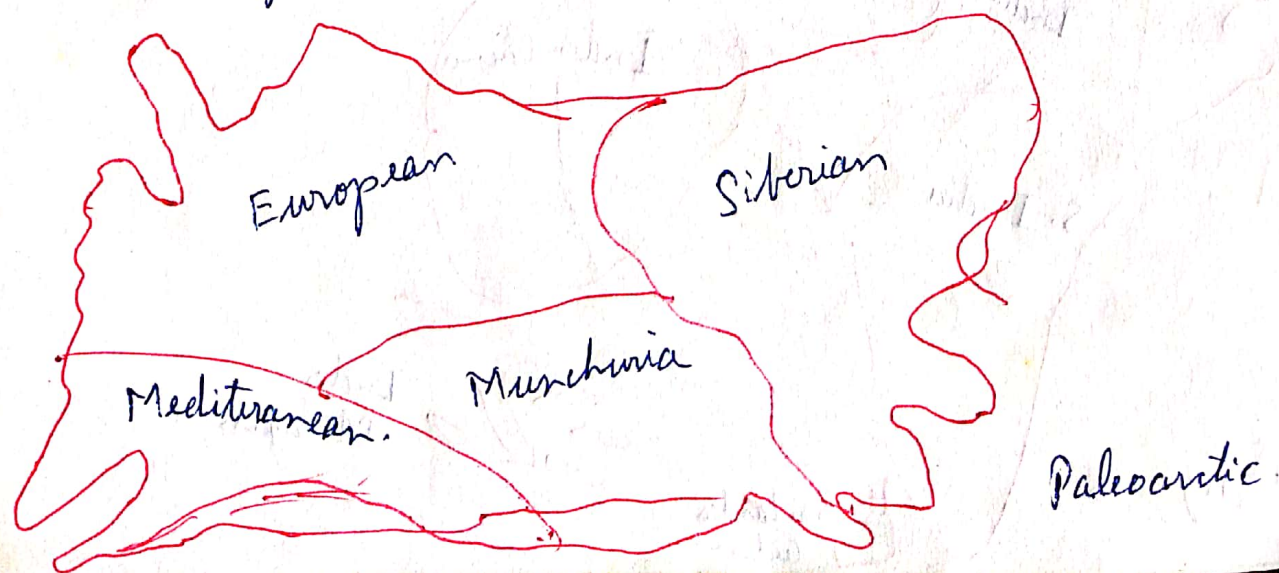 European
Siberian
Mediteranean.
Munchuria
Paleoarctic